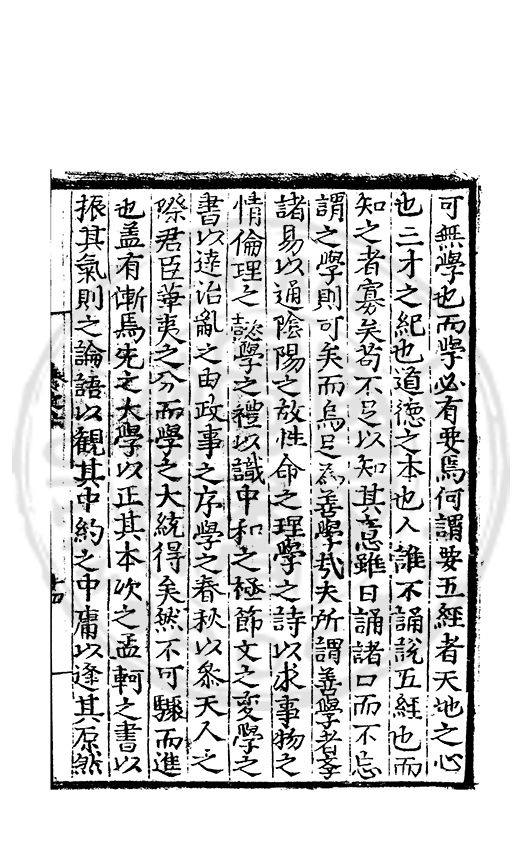 可無學也而學必有要焉何謂要五經者天地之心
也三才之紀也道德之本也人誰不誦說五經也而
知之者寡矣苟不足以知其意雖日誦諸口而不忘
謂之學則可矣而烏足為善學哉夫所謂善學者學
諸易以通陰陽之故性命之理學之詩以求事物之
情倫理之懿學之禮以識中和之極節文之變學之
書以達治亂之由政事之序學之春秋以參天人之
際君臣華夷之分而學之大統得矣然不可驟而進
也盖有漸焉先之大學以正其本次之孟軻之書以
振其氣則之論語以觀其中約之中庸以逢其原然
十四